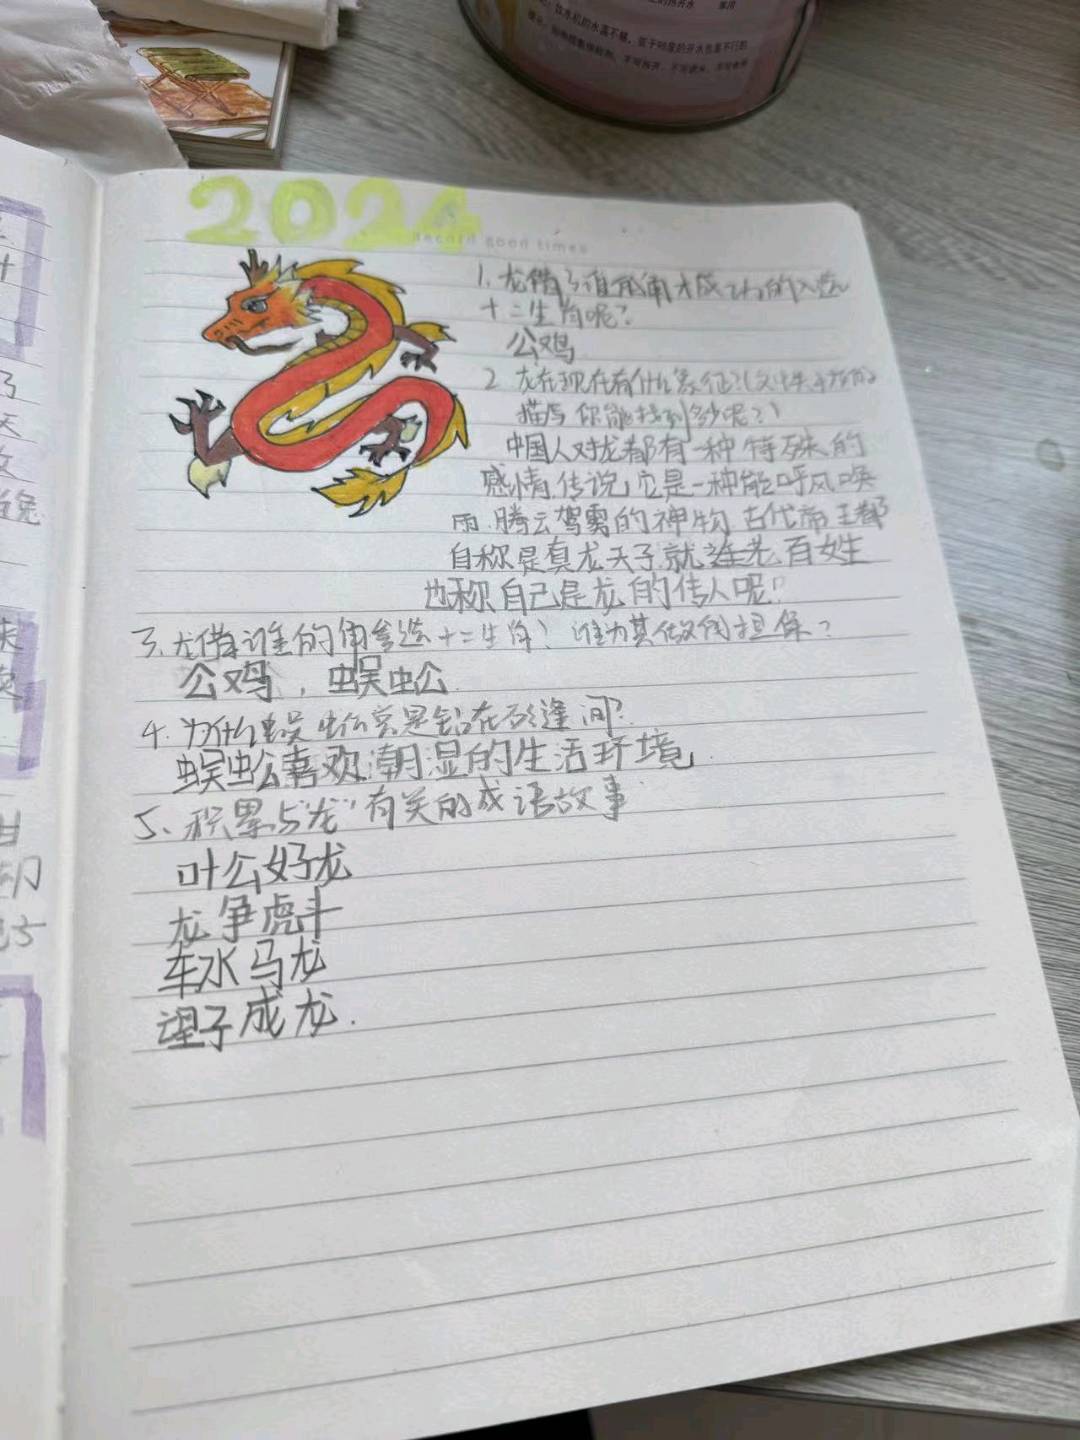 饮水机的水温不够，低于90度的开水也是不行的
2024
Record good times
1. 龙借了谁的角才成功的入选
十二生肖呢?
公鸡
2 龙在现在有什么象征?(文中
描写你能找到多少呢?)
中国人对龙都有一种特殊的
感情,传说,它是一种能呼风唤
雨.腾云驾雾的神物.古代帝王都
自称是真龙天子.就连老百姓
也称自己是龙的传人呢!
3.龙借谁的角参选十二生肖? 谁为其做的担保?
公鸡,蜈蚣.
4.为什么蜈蚣总是钻在石缝间?
蜈蚣喜欢潮湿的生活环境.
5、积累与"龙"有关的成语故事
叶公好龙
龙争虎斗
车水马龙
望子成龙.